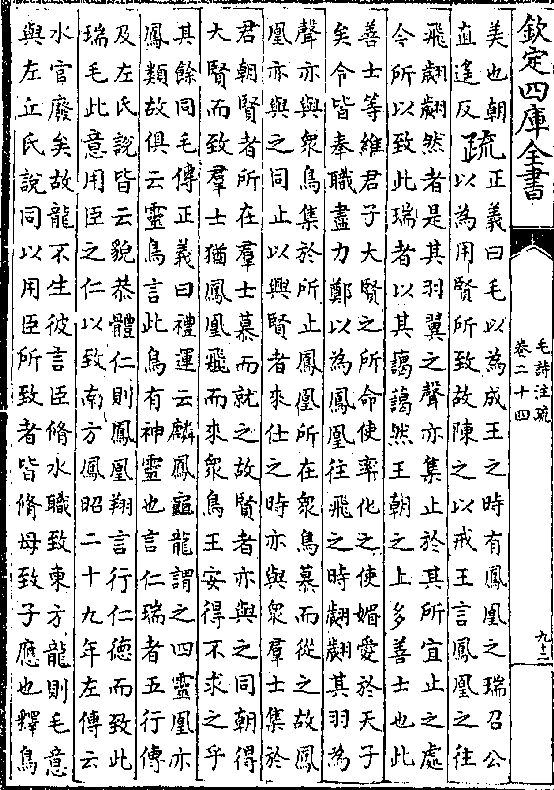 欽定四庫全書
毛詩注疏
卷二十四
九十二
美也朝
直遙反
疏
正義曰毛以為成王之時有鳳凰之瑞召公
以為用賢所致故陳之以戒王言鳳凰之往
飛翽翽然者是其羽翼之聲亦集止於其所宜止之處
今所以致此瑞者以其藹藹然王朝之上多善士也此
善士等維君子大賢之所命使率化之使媚愛於天子
矣今皆奉職盡力鄭以為鳳凰往飛之時翽翽其羽為
聲亦與衆鳥集於所止鳳凰所在衆鳥慕而從之故鳳
凰亦與之同止以興賢者來仕之時亦與衆羣士集於
君朝賢者所在羣士慕而就之故賢者亦與之同朝得
大賢而致羣士猶鳳凰飛而來衆鳥王安得不求之乎
其餘同毛傳正義曰禮運云麟鳳龜龍謂之四靈凰亦
鳳類故俱云靈鳥言此鳥有神靈也言仁瑞者五行傳
及左氏說皆云貌恭體仁則鳳凰翔言行仁德而致此
瑞毛此意用臣之仁以致南方鳳昭二十九年左傳云
水官廢矣故龍不生彼言臣脩水職致東方龍則毛意
與左丘氏說同以用臣所致者皆脩母致子應也釋鳥